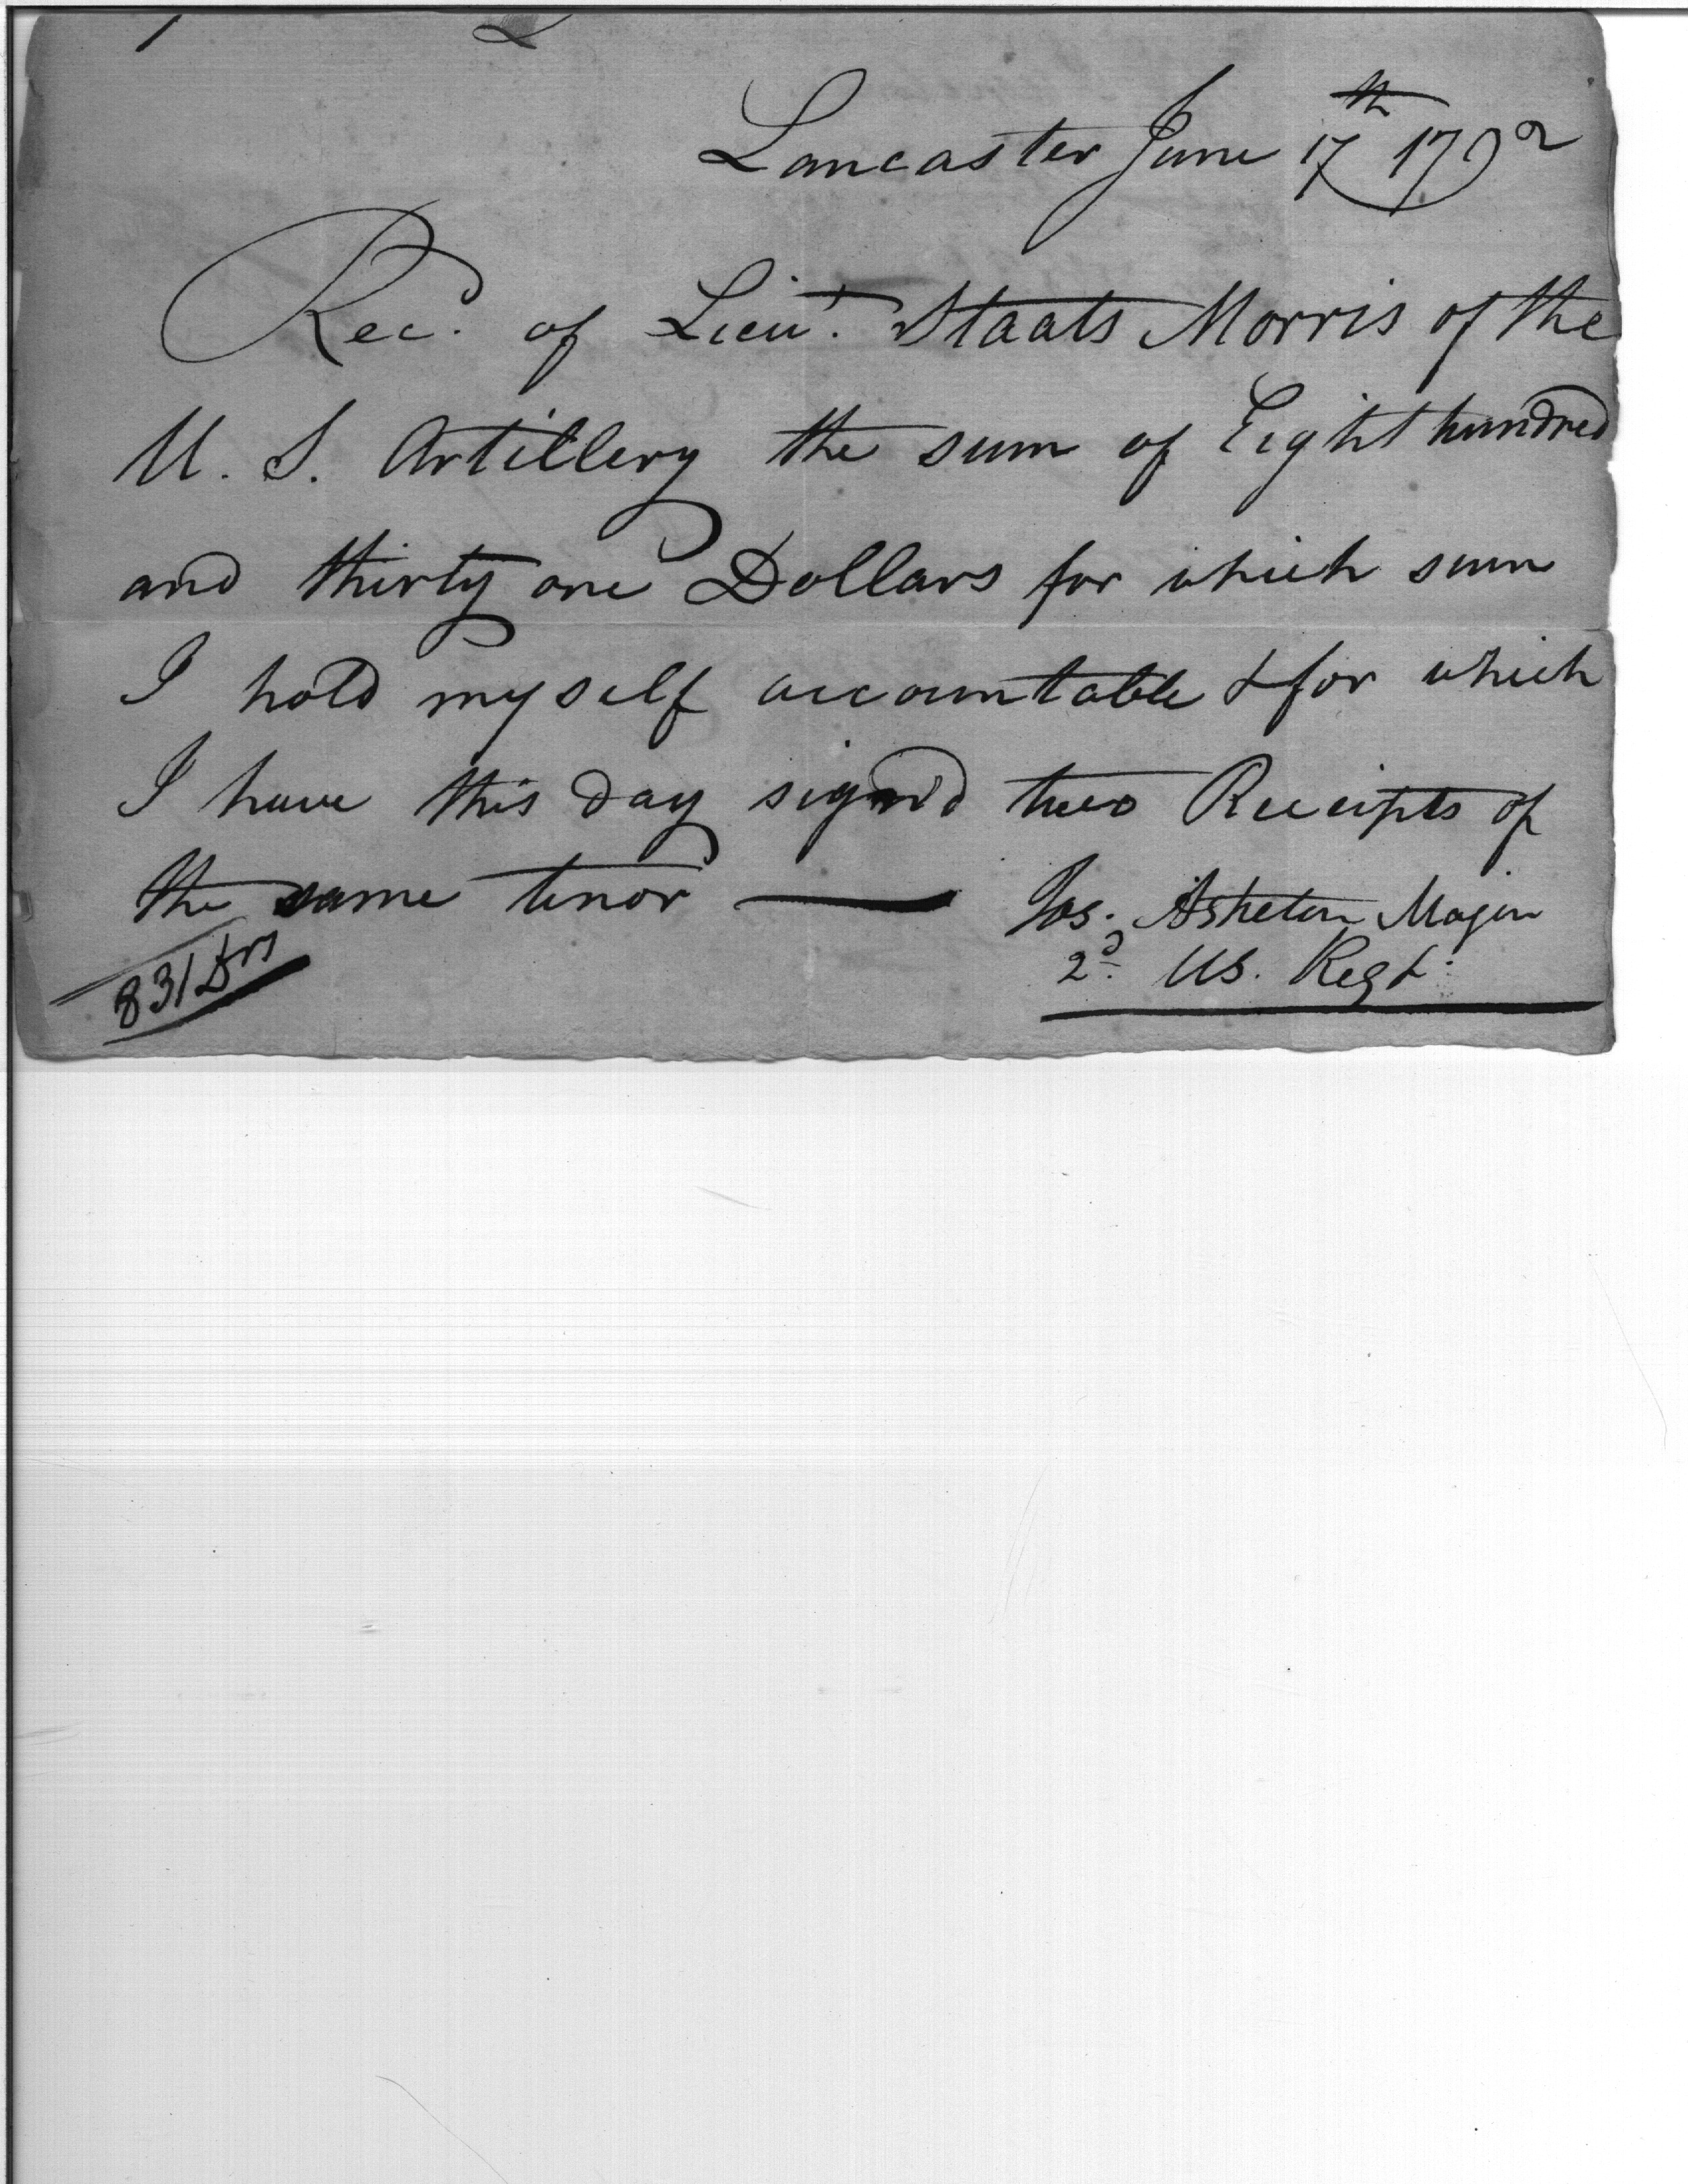 Lancaster June 17th 1792
Rec.d of Lieu.t Staats Morris of the
U. S. Artillery the sum of Eight hundred
and thirty one Dollars for which sum
I hold myself accountable & for which
I have this day signd two Receipts of
the same tenor —
Jos. Asheton Major
2d. US. Regt.
831 Drs